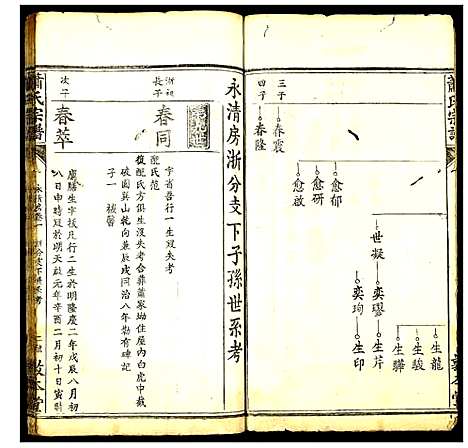 蕭氏宗譜
三子
四子
春震
春隆
愈郁
愈研
愈啟
世凝
奕璆
奕珣
生龍
生駿
生驊
生芹
生印
永清房浙分支下子孫世系考
浙祖
長子
春同
字省吾行一生歿失考
配氏范
復配氏方俱生沒失考合葬蕭家坳住屋內白虎中截
破圓巽山乾向兼辰戌同治八年勒有碑記
子一
次子
春萃
慶勝生字拔庄行二生於明隆慶二年戊辰八月初
八日申時歿於明天啟元年辛酉二月初十日寅時
蕭氏宗譜
敦本堂